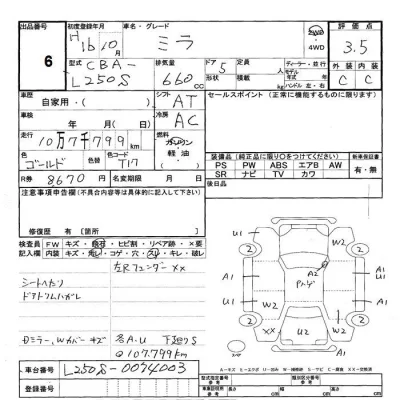 出品番号 初度登録年月 車名・グレード 評価点
6 H16年10月 ミラ 4WD 3.5
型式 CBA-L250S 排気量 660cc
ドア 5 形状 定員 積載 ディーラー・並行 モデル年式 ハンドル 左・右 外装 内装 C C
車歴 自家用・( ) シフト AT セールスポイント (正常に機能するものに限ります)
車検 年 月(日) 冷房 AC
走行 10万7千799km ガソリン 軽油
色 ゴールド 色替 色コード T17
装備品(純正品に限り○をつけてください) 新車保証書
PS PW ABS エアB AW 有・無
SR ナビ TV カワ
R券 8670円 名変期限 月 日 後日品
注意事項申告欄(不具合内容等は具体的に記入して下さい)
修復歴 有〔箇所
検査員記入欄 FW キズ・飛石・ヒビ割・リペア跡・×要
内装 キズ・汚レ・コゲ・穴・スレ・キレ・破レ
左Rフェンダー××
シートヘタリ
ドアトリムハガレ
Dミラー、Wカバーキズ 各A.U 下廻りS
◎107.799km
車台番号 L250S-0074003
登録番号
U1 2 W2 2 A1
A2 A1
A1 U1
W2 W2
2 XX U2 2 A1
A1